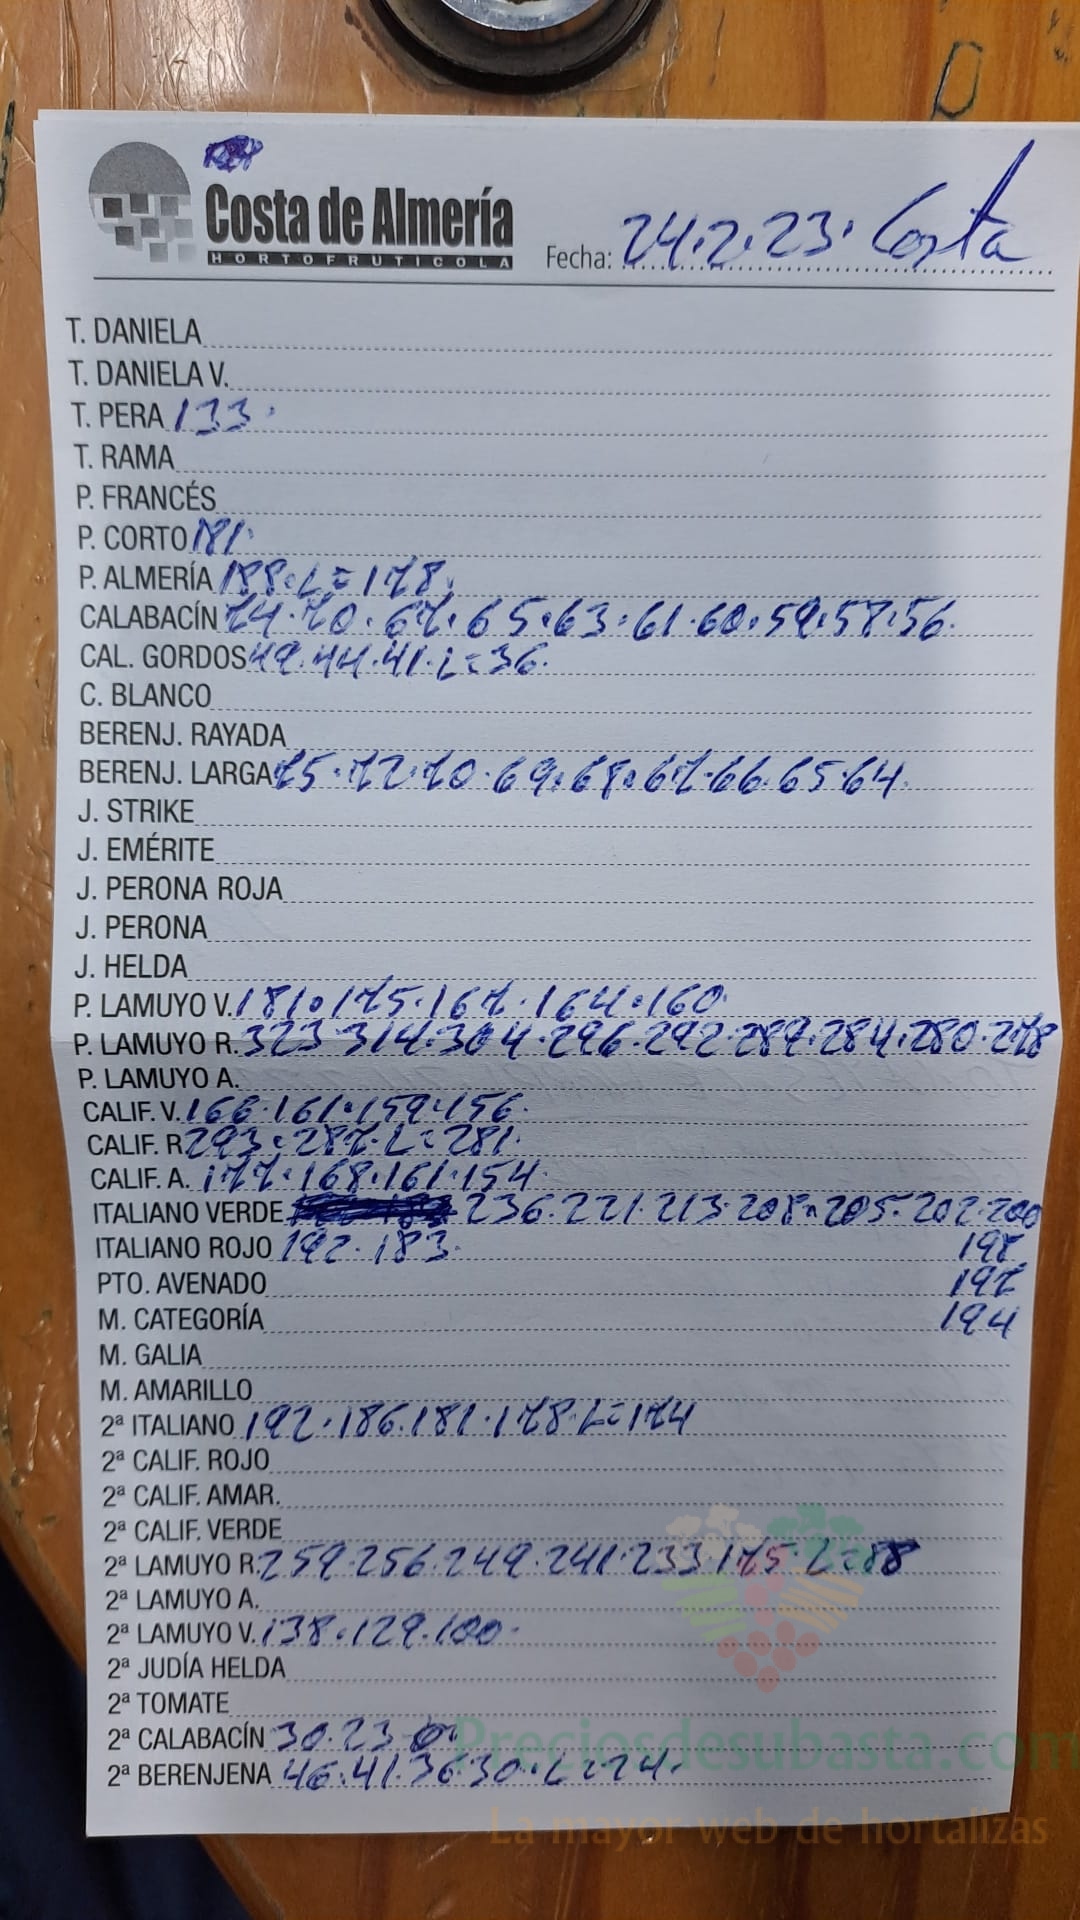 Costa de Almería
HORTOFRUTICOLA
Fecha: 24.2.23. Costa
T. DANIELA
T. DANIELA V.
T. PERA 133.
T. RAMA
P. FRANCÉS
P. CORTO 181.
P. ALMERÍA 188. L=178.
CALABACÍN 74.70.67.65.63.61.60.59.57.56.
CAL. GORDOS 49.44.41.L=36.
C. BLANCO
BERENJ. RAYADA
BERENJ. LARGA 75.72.70.69.68.67.66.65.64.
J. STRIKE
J. EMÉRITE
J. PERONA ROJA
J. PERONA
J. HELDA
P. LAMUYO V. 181.175.167.164.160.
P. LAMUYO R. 323 314.304.296.292.289.284.280.278
P. LAMUYO A.
CALIF. V. 166.161.159.156.
CALIF. R 293.287.L=281.
CALIF. A. 177.168.161.154.
ITALIANO VERDE 236.221.213.208.205.202.200
ITALIANO ROJO 192.183. 198
PTO. AVENADO 197
M. CATEGORÍA 194
M. GALIA
M. AMARILLO
2ª ITALIANO 192.186.181.178.L=174
2ª CALIF. ROJO
2ª CALIF. AMAR.
2ª CALIF. VERDE
2ª LAMUYO R. 259.256.249.241.233.175.L=88
2ª LAMUYO A.
2ª LAMUYO V. 138.129.100.
2ª JUDÍA HELDA
2ª TOMATE
2ª CALABACÍN 30.23
2ª BERENJENA 46.41.36 30.L=24.
Preciosdesubasta.com
La mayor web de hortalizas